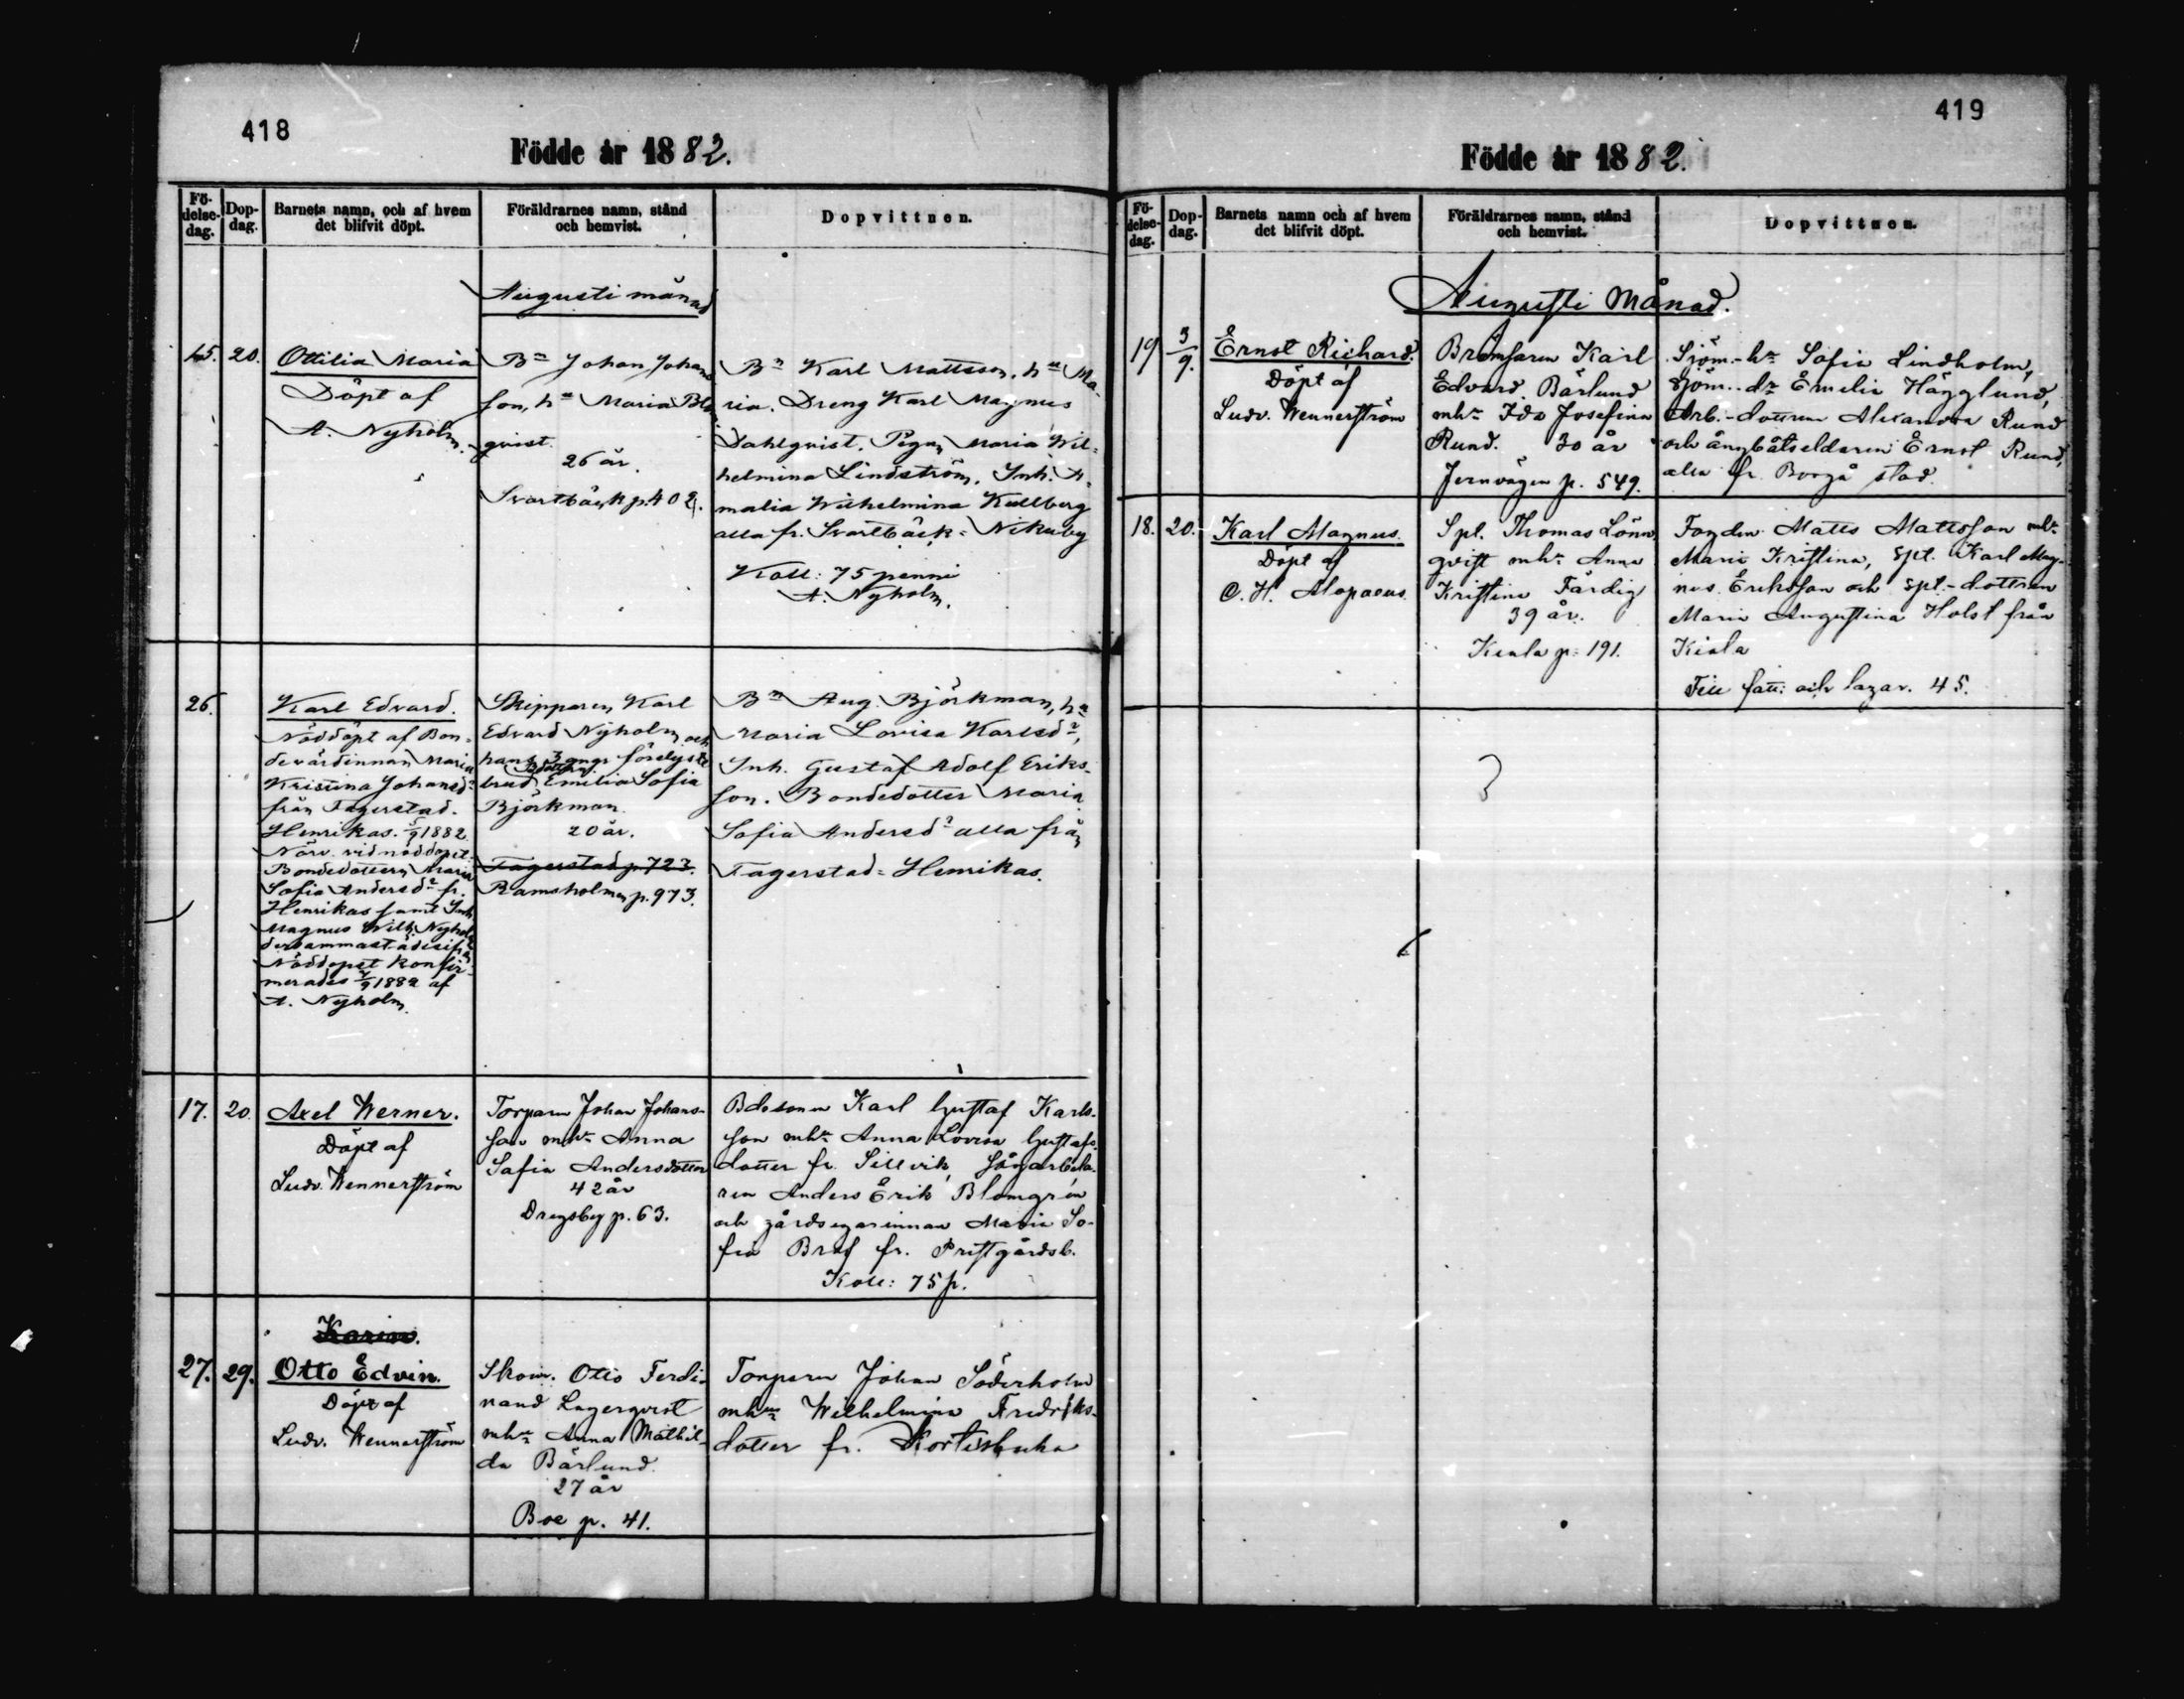 418
Födde år 1882.
Födelsedag.
Dopdag.
Barnets namn, och af hvem det blifvit döpt.
Föräldrarnes namn, stånd och hemvist.
Dopvittnen.
Augusti månad
15. 20.
Ottilia Maria
Döpt af
A. Nyholm.
Bn Johan Johans
son, hn Maria Blom
qvist.
26 år.
Svartbäck p. 402.
Bn Karl Mattsson, hn Ma-
ria. Dreng Karl Magnus
Dahlqvist. Pigan Maria Wil-
helmina Lindström. Inh. A-
malia Wilhelmina Kullberg
alla fr. Svartbäck = Nikuby
Koll: 75 penni
A. Nyholm.
26.
Karl Edvard.
Nöddöpt af Bon-
devärdinnan Maria
Kristina Johansdr
från Fagerstad.
Henrikas. 5/9 1882
Närv. vid nöddopet.
Bondedottern Maria
Sofia Andersdr fr.
Henrikas samt Inh.
Magnus Wilh. Nyholm
dersammastädesifrån
Nöddopet konfir-
merades 7/9 1882 af
A. Nyholm.
Skepparen Karl
Edvard Nyholm och
hans 3 gngr förelyste
brud Bdottern Emilia Sofia
Björkman.
20 år.
Fagerstad p. 723.
Ramsholmen p. 973.
Bn Aug. Björkman, hn
Maria Lovisa Karlsdr,
Inh. Gustaf Adolf Eriks-
son. Bondedotter Maria
Sofia Andersdr alla från
Fagerstad = Henrikas.
17. 20.
Axel Werner.
Döpt af
Ludv. Wennerström
Torparen Johan Johans-
son mhn Anna
Sofia Andersdotter
42 år
Dregsby p. 63.
Bdesonen Karl Gustaf Karls-
son mhn Anna Lovisa Gustafs-
dotter fr. Sillvik, sågarbeta-
ren Anders Erik Blomgrén
och gårdsegarinnan Maria So-
fia Bref fr. Prestgårdsb.
Koll: 75 p.
27. 29.
Karin.
Otto Edvin.
Döpt af
Ludv. Wennerström
Skom. Otto Ferdi-
nand Lagerqvist
mhn Anna Mathil-
da Bärlund.
27 år
Boe p. 41.
Torparen Johan Söderholm
mhn Wilhelmina Fredriks-
dotter fr.
419
Födde år 1882.
Födelsedag.
Dopdag.
Barnets namn och af hvem det blifvit döpt.
Föräldrarnes namn, stånd och hemvist.
Dopvittnen.
Augusti Månad.
19 3/9.
Ernst Richard.
Döpt af
Ludv. Wennerström
Bromsaren Karl
Edvard Bärlund
mhn Ida Josefina
Rund. 30 år
Jernvägen p. 549.
Sjöm.-hn Sofia Lindholm,
sjöm.-dr Emelie Hägglund,
Arb.-dottren Alexandra Rund
och ångbåtseldaren Ernst Rund,
alla fr. Borgå stad.
18. 20.
Karl Magnus.
Döpt af
C. H. Alopaeus.
Spl. Thomas Lönn-
qvist mhn Anna
Kristina Färdig
39 år.
Kiala p. 191.
Fogden Matts Mattsson mhn
Maria Kristina, spt. Karl Mag-
nus Eriksson och spt-dottren
Maria Augustina Holst från
Kiala
Till fatt: och lazar. 45.